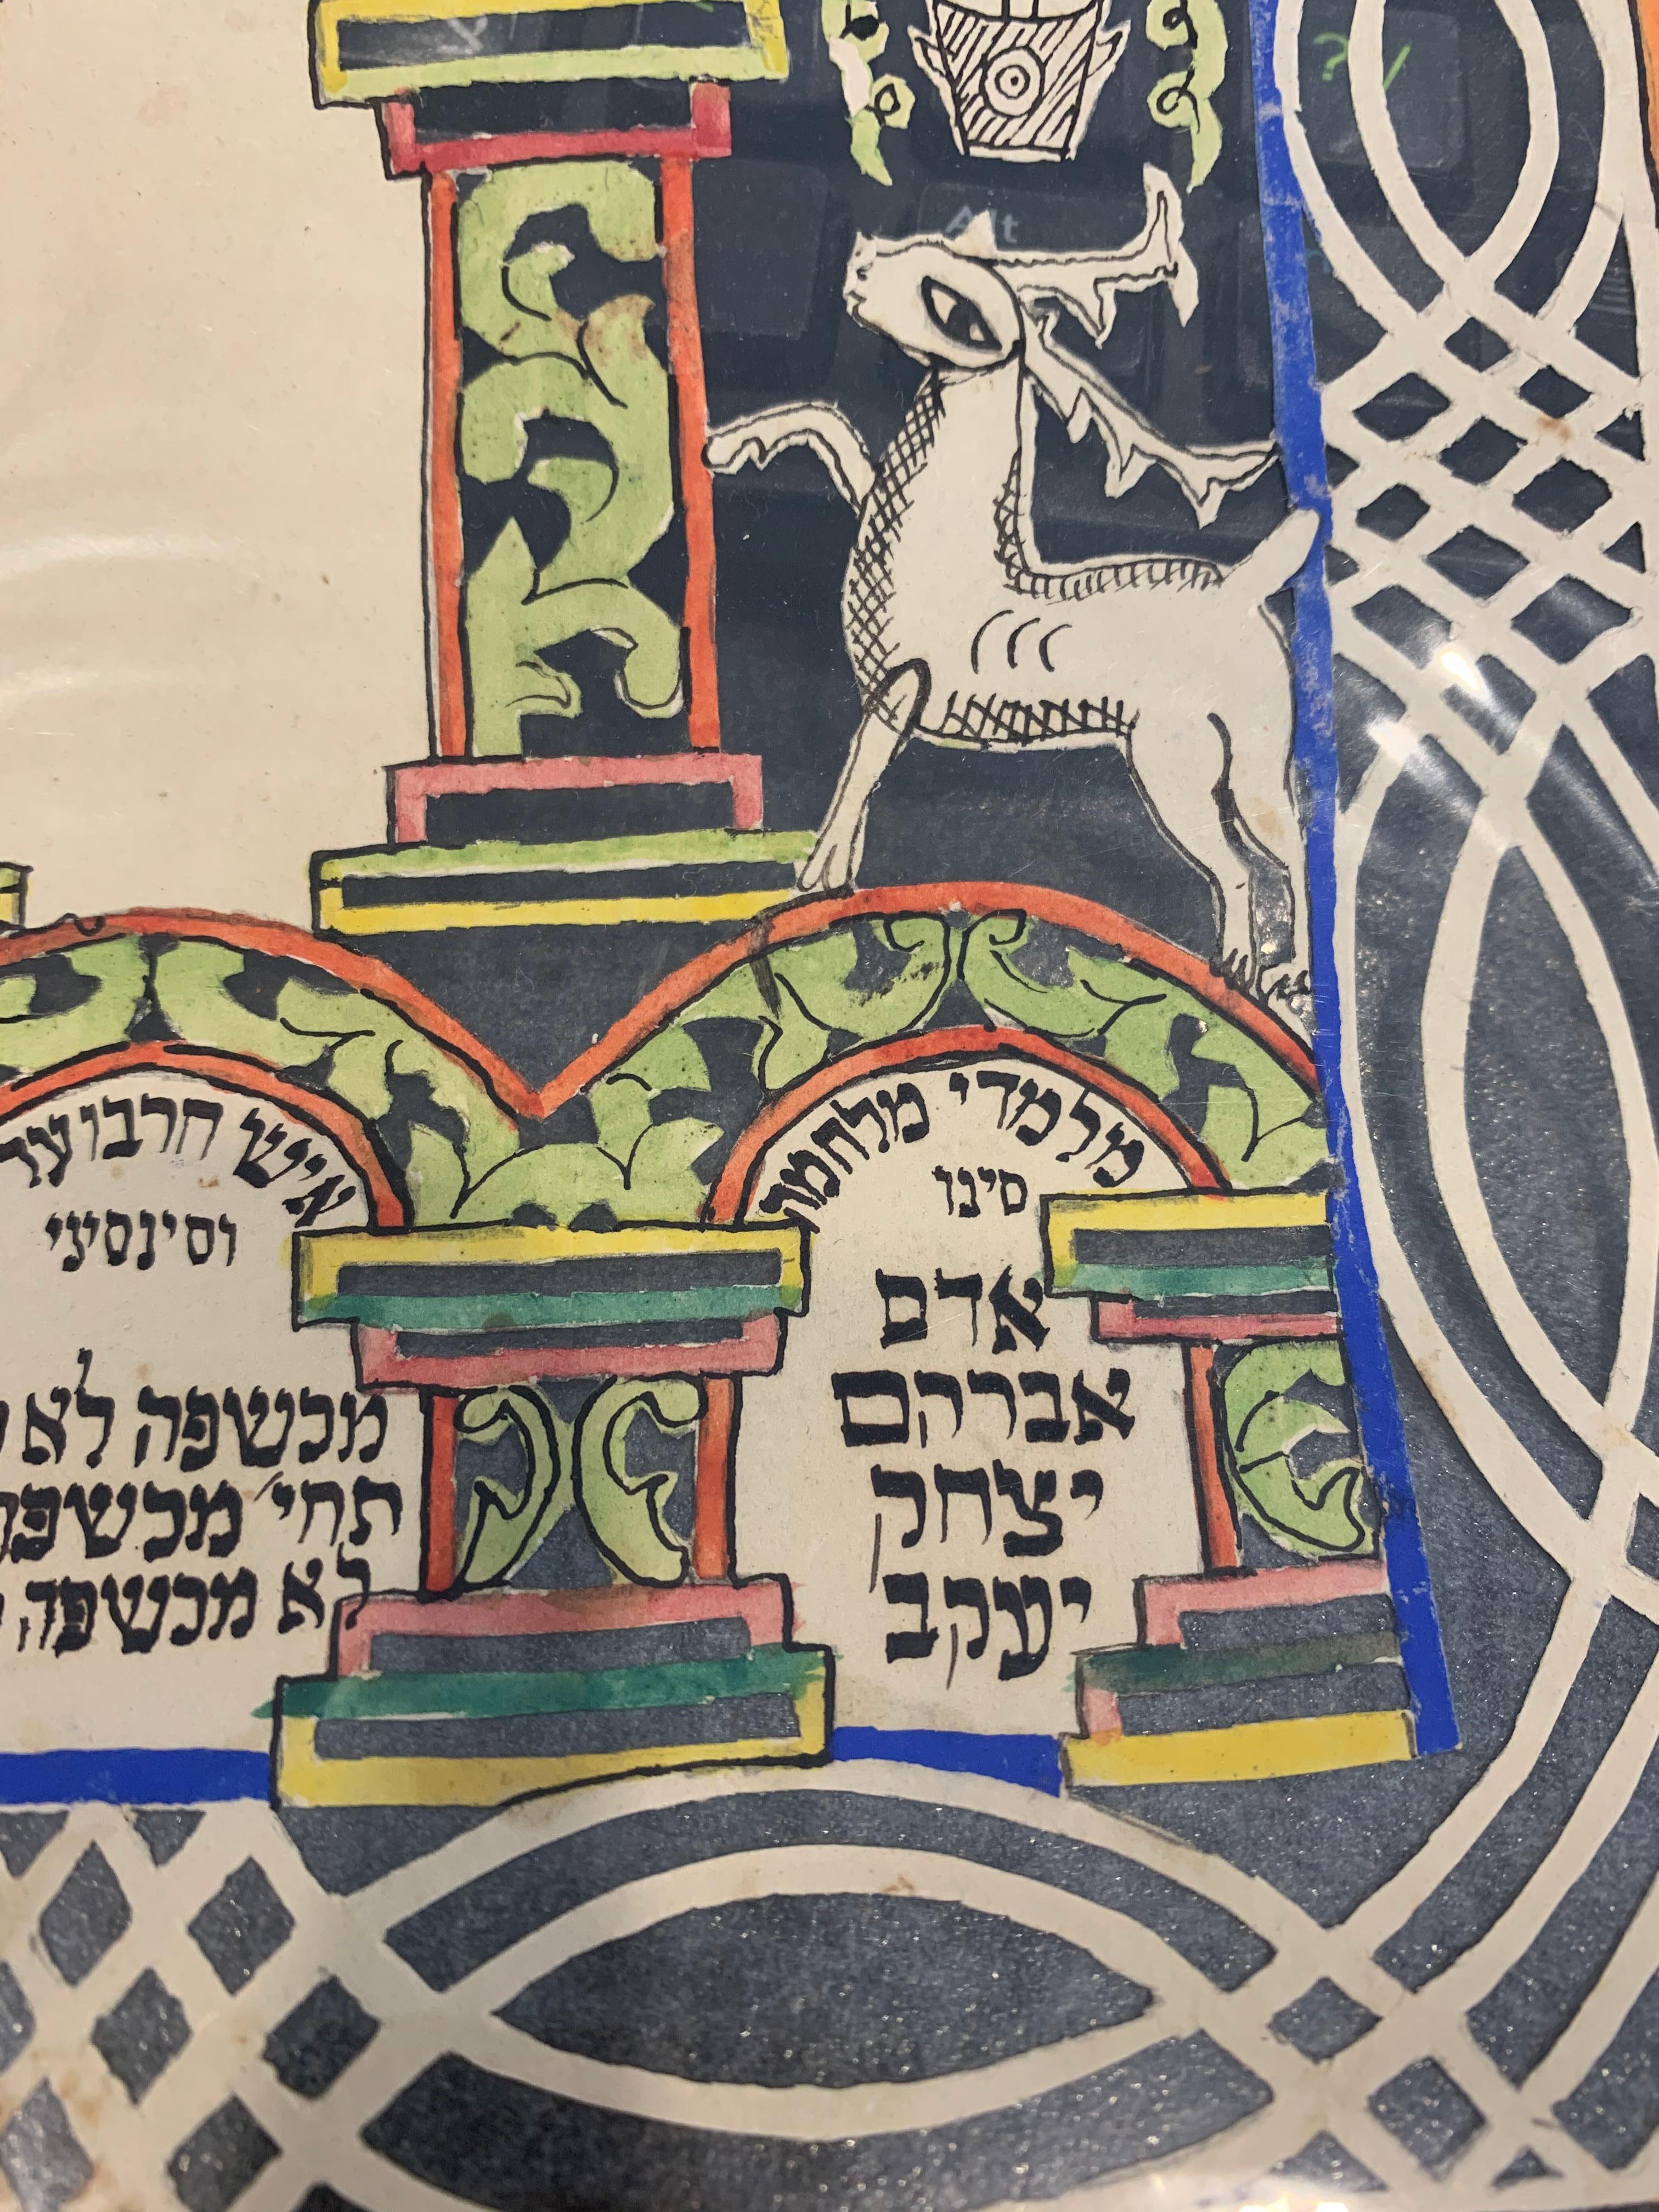 Alt
מלמדי מלחמה
סינו
אדם
אברהם
יצחק
יעקב
איש חרבו על
וסינסיני
מכשפה לא
תחי׳ מכשפה
לא מכשפה